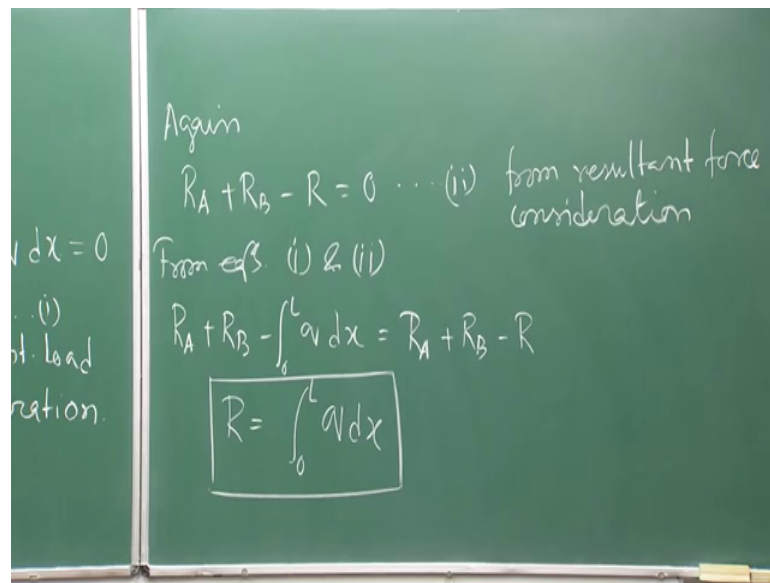 dx = 0
...(i)
Load
ration.
Again
R_A + R_B - R = 0 ....(ii) from resultant force
consideration
From eqs. (i) & (ii)
R_A + R_B - ∫_0^L q dx = R_A + R_B - R
R = ∫_0^L q dx